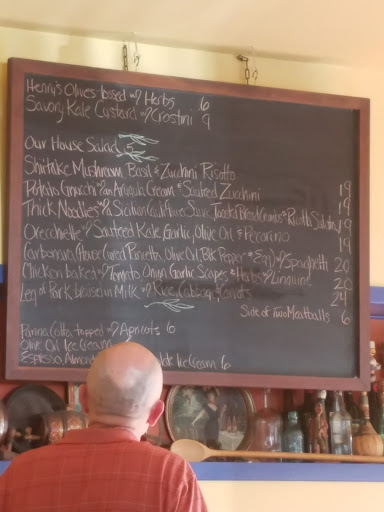 Henry's Olives tossed w/ Herbs 6
Savory Kale Custard w/ Crostini 9
Our House Salad 5
Shiitake Mushroom Basil & Zucchini Risotto 19
Potato Gnocchi w/ an Arugula Cream & Sautéed Zucchini 19
Thick Noodles w/ a Sicilian Cauliflower Sauce Toasted Bread Crumbs & Ricotta Salata 19
Orecchiette w/ Sauteed Kale, Garlic, Olive Oil & Pecorino 19
Carbonara (House Cured Pancetta, Olive Oil, Blk Pepper & Egg) w/ Spaghetti 20
Chicken baked w/ Tomato Onion Garlic Scapes & Herbs w/ Linguine 20
Leg of Pork braised in Milk w/ Rice, Cabbage & Carrots 24
Side of Two Meatballs 6
Panna Cotta topped w/ Apricots 6
Olive Oil Ice Cream
Espresso, Almond Ice Cream 6